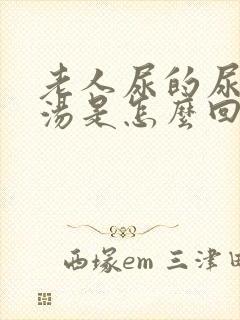 老人尿的尿
汤是怎麼回
西塚em 三津田